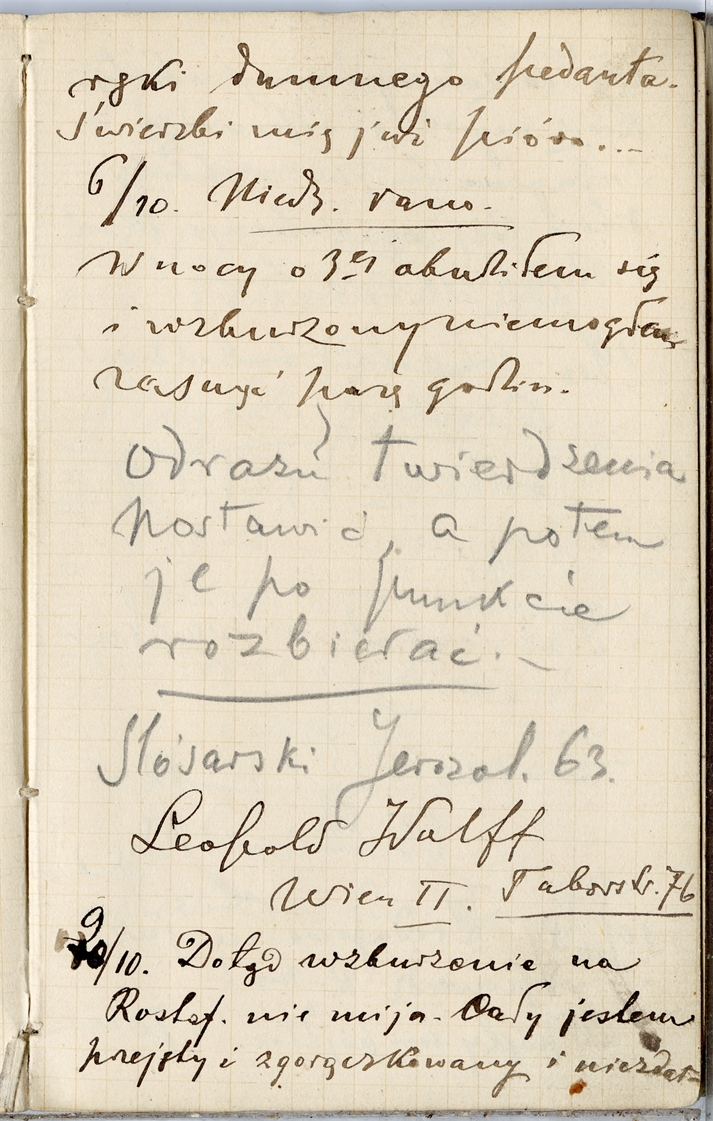 ręki dumnego pedanta.
Świerzbi mię już pióro...
6/10. Niedz. rano.
W nocy o 3ej obudziłem się
i wzburzony niemogłem
zasnąć parę godzin.
Odrazu twierdzenia
postawić, a potem
je po punkcie
rozbierać.–
Slósarski Jerozol. 63.
Leopold Wolff
Wien II. Taborstr. 76
9/10. Dotąd wzburzenie na
Rostaf. nie mija. Cały jestem
przejęty i zgorączkowany i niezdat-